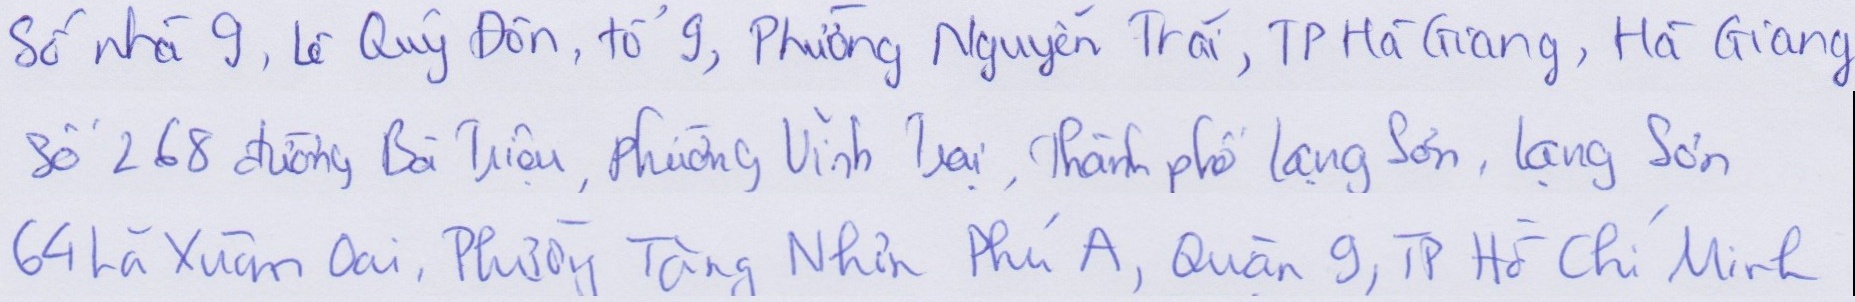 Số nhà 9, Lê Quý Đôn, tổ 9, Phường Nguyễn Trãi, TP Hà Giang, Hà Giang
Số 268 đường Bà Triệu, phường Vĩnh Trại, Thành phố Lạng Sơn, Lạng Sơn
64 Lã Xuân Oai, Phường Tăng Nhơn Phú A, Quận 9, TP Hồ Chí Minh